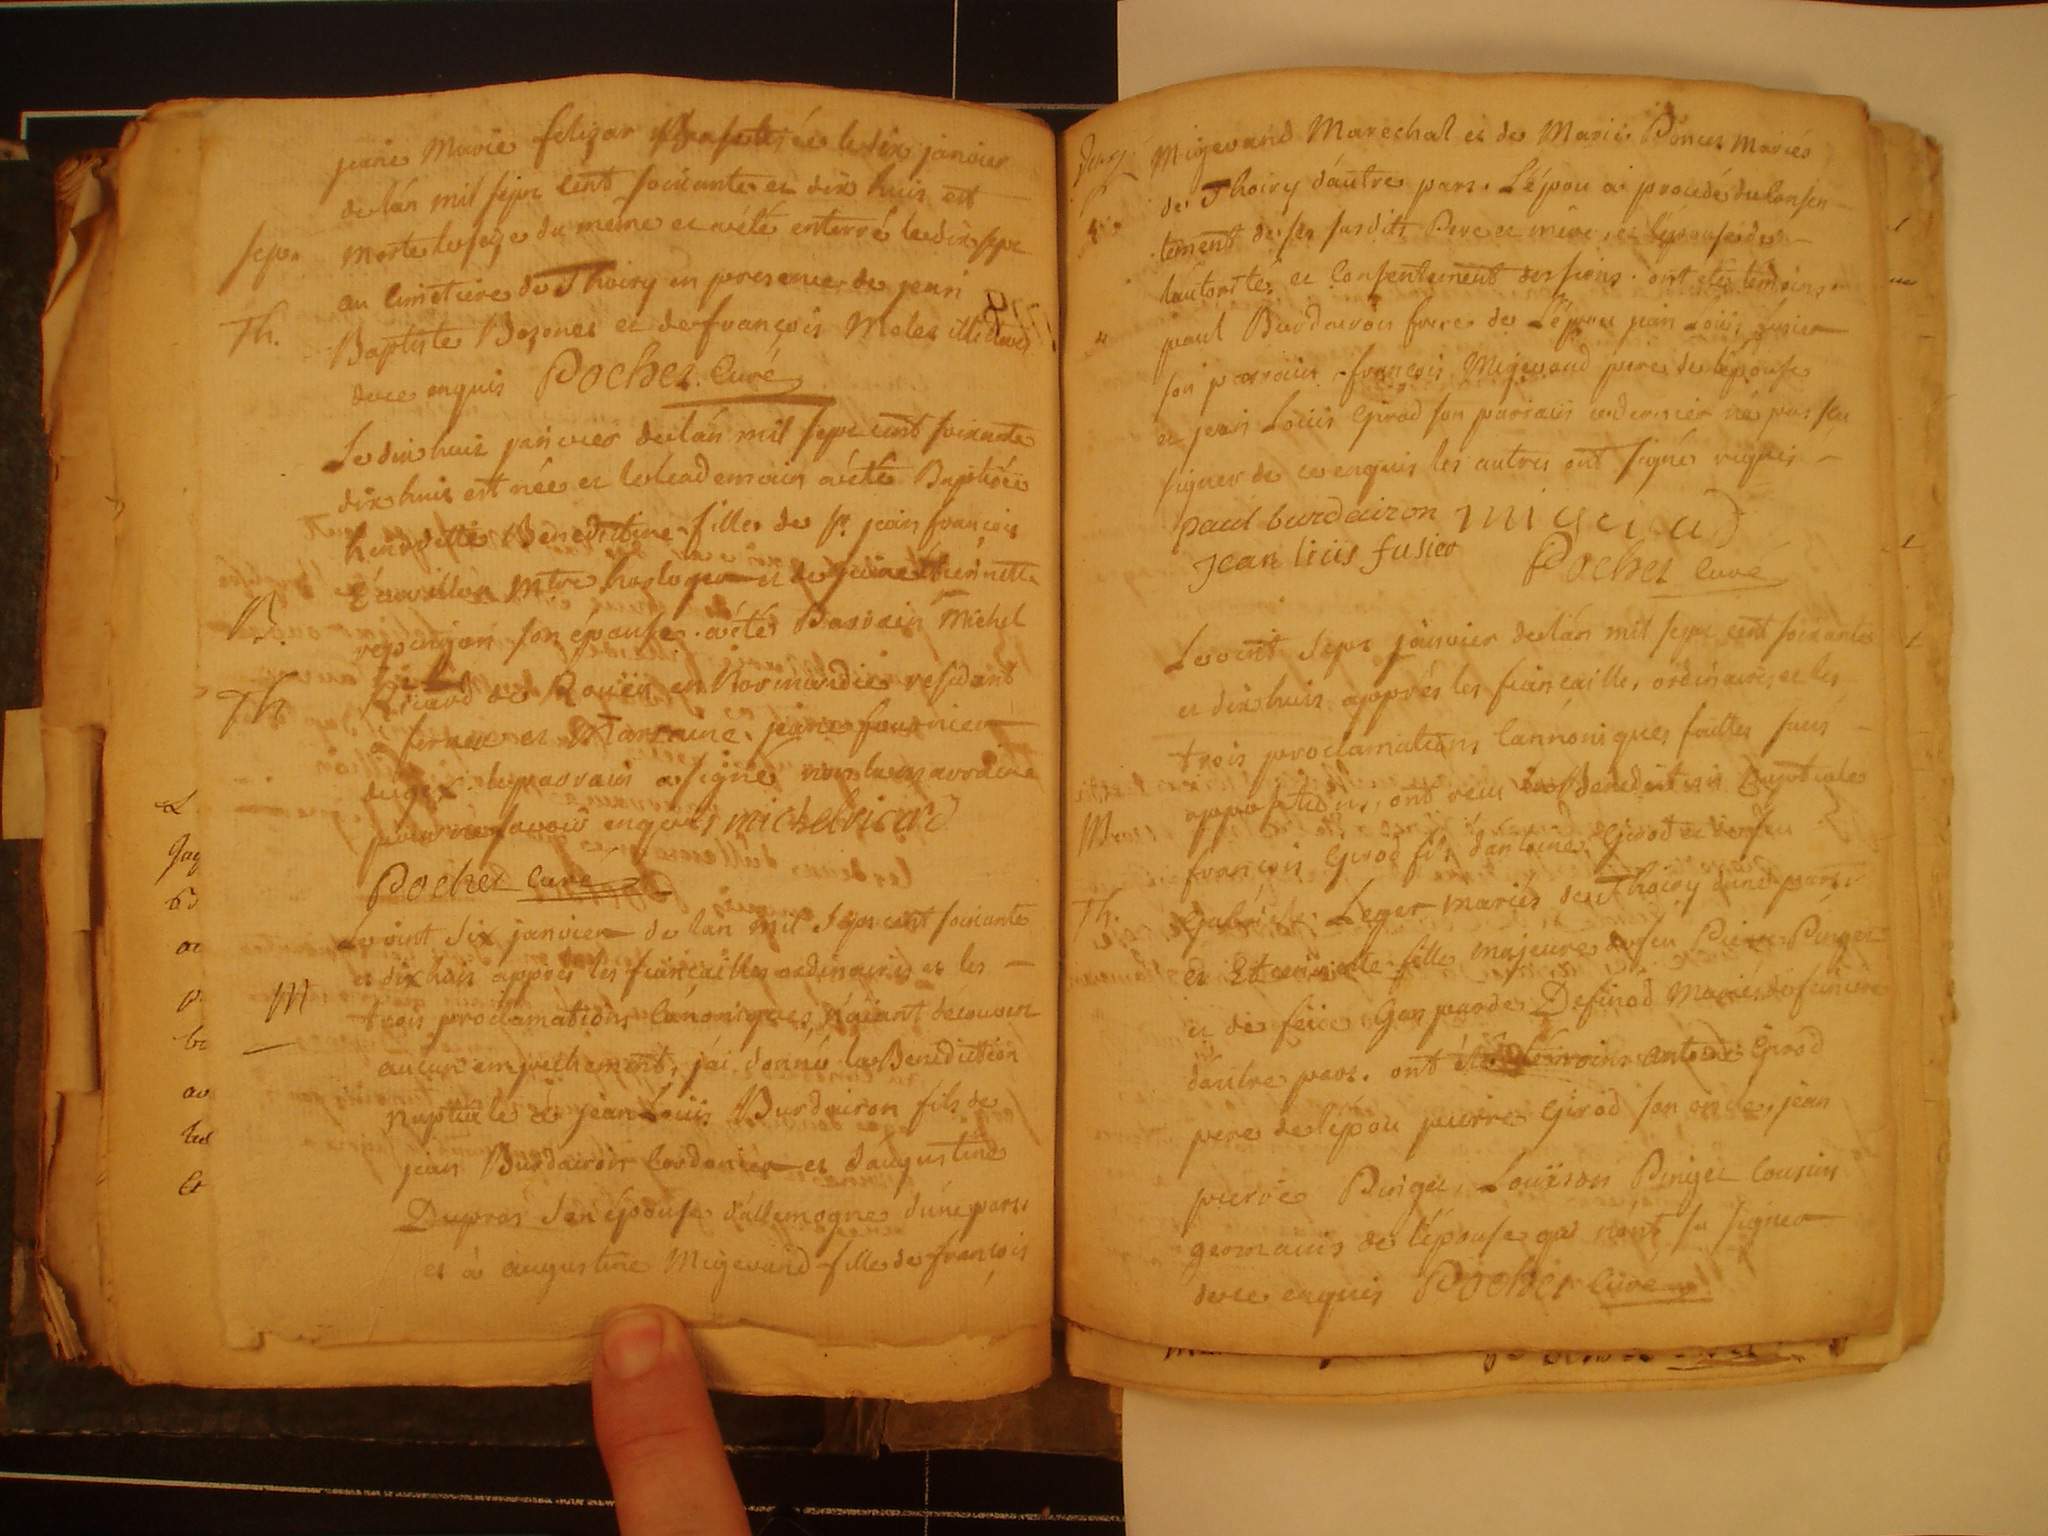 jeane Marie feligar née le dix janvier
de lán mil sept cent soixante et dix huit est
sep. morte le seize du meme et a été enterré le dix sept
au cimetiere de Thoiry en presence de jean
Th. Baptiste Bozonet et de françois Molet illiterés
de ce enquis Pochet Curé
Le dix huit janvier de lán mil sept cent soixante
dix huit est née et le leademain a été Baptisée
henriette Benedictine fille de Sr. jean françois
mtre horloger et de jeane Etiennette
B. son épouse. a été Parrain Michel
Th Ricard de Rouën en Normandie residant
a fernex et Marraine jeane fournier
de gex. le parrain a signé non la marraine
pour ne savoir enquis michel ricard
Pochet Curé
Le vint six janvier de lan mil sept cent soixante
et dix huit apprés les fiançailles ordinaires et les
M trois proclamations Canoniques n'aïant découvert
aucun empechement, j'ai donné la Benediction
Nuptiale à jean Loüis Burdairon fils de
jean Burdairon Cordonier et d'augustine
Dupras son épouse d'allemogne d'une part.
et à augustine Migevand fille de françois
L
Jaq
a
b
au
et
Migevand Marechal et de Marie Poncet Mariés
de Thoiry d'autre part. L'épou a procedé du Consen
tement de ses susdits Pere et mere, et l'épouse de
l'autorité et Consentement des siens. ont été témoins
paul Burdairon frere de L'épou jean Loüis fusier
son parrain françois Migevand pere de l'épouse
et jean Louis Girod son parrain ce dernier n'a pas scu
signer de ce enquis les autres ont signé requis
paul burdairon migevad
Jean liüis fusier Pochet Curé
Le vint sept janvier de lán mil sept cent soixante
et dix huit apprés les fiançailles ordinaires et les
trois proclamations Cannoniques faittes sans
M opposition, ont recu la Benediction Nuptiale
françois Girod fils d'antoine Girod et de feu
Th. Gabriele Leger mariés de Thoiry d'une part
et Etiennette fille majeure de feu Pierre Pinget
et de feüe Gasparde Definod Mariés de
d'autre part. ont été témoins antoine Girod
pere de l'épou pierre Girod son oncle, jean
pierre Pinget, Loüison Pinget Cousins
germains de l'épouse qui n'ont su signer
de ce enquis Pochet Curé